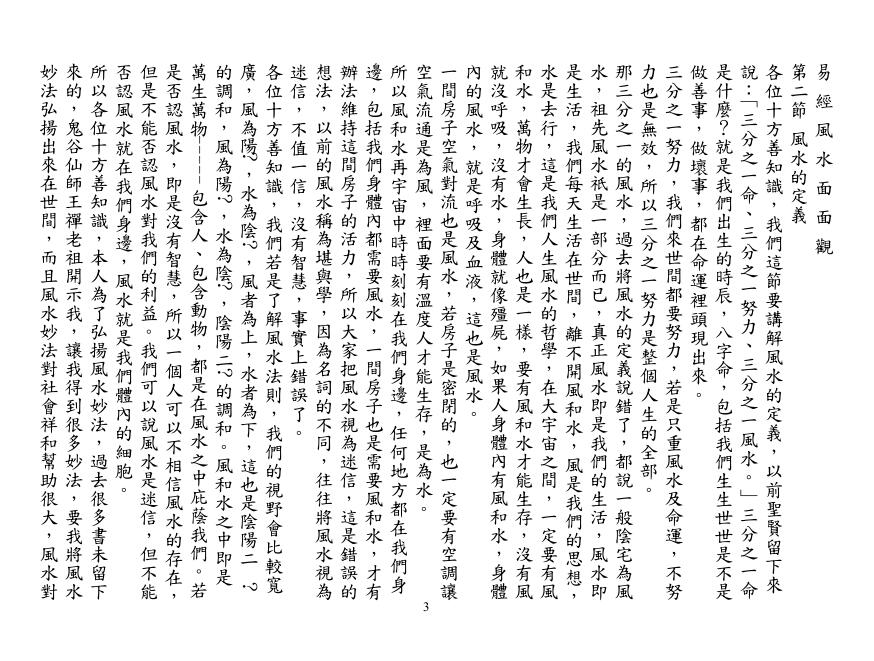 易經風水面面觀
第二節 風水的定義
各位十方善知識，我們這節要講解風水的定義，以前聖賢留下來
說：「三分之一命、三分之一努力、三分之一風水。」三分之一命
是什麼？就是我們出生的時辰，八字命，包括我們生生世世是不是
做善事，做壞事，都在命運裡頭現出來。
三分之一努力，我們來世間都要努力，若是只重風水及命運，不努
力也是無效，所以三分之一努力是整個人生的全部。
那三分之一的風水，過去將風水的定義說錯了，都說一般陰宅為風
水，祖先風水祇是一部分而已，真正風水即是我們的生活，風水即
是生活，我們每天生活在世間，離不開風和水，風是我們的思想，
水是去行，這是我們人生風水的哲學，在大宇宙之間，一定要有風
和水，萬物才會生長，人也是一樣，要有風和水才能生存，沒有風
就沒呼吸，沒有水，身體就像殭屍，如果人身體內有風和水，身體
內的風水，就是呼吸及血液，這也是風水。
一間房子空氣對流也是風水，若房子是密閉的，也一定要有空調讓
空氣流通是為風，裡面要有溫度人才能生存，是為水。
所以風和水再宇宙中時時刻刻在我們身邊，任何地方都在我們身
邊，包括我們身體內都需要風水，一間房子也是需要風和水，才有
辦法維持這間房子的活力，所以大家把風水視為迷信，這是錯誤的
想法，以前的風水稱為堪與學，因為名詞的不同，往往將風水視為
迷信，不值一信，沒有智慧，事實上錯誤了。
各位十方善知識，我們若是了解風水法則，我們的視野會比較寬
廣，風為陽?，水為陰?，風者為上，水者為下，這也是陰陽二 ?
的調和，風為陽?，水為陰?，陰陽二?的調和。風和水之中即是
萬生萬物----包含人、包含動物，都是在風水之中庇蔭我們。若
是否認風水，即是沒有智慧，所以一個人可以不相信風水的存在，
但是不能否認風水對我們的利益。我們可以說風水是迷信，但不能
否認風水就在我們身邊，風水就是我們體內的細胞。
所以各位十方善知識，本人為了弘揚風水妙法，過去很多書未留下
來的，鬼谷仙師王禪老祖開示我，讓我得到很多妙法，要我將風水
妙法弘揚出來在世間，而且風水妙法對社會祥和幫助很大，風水對
3